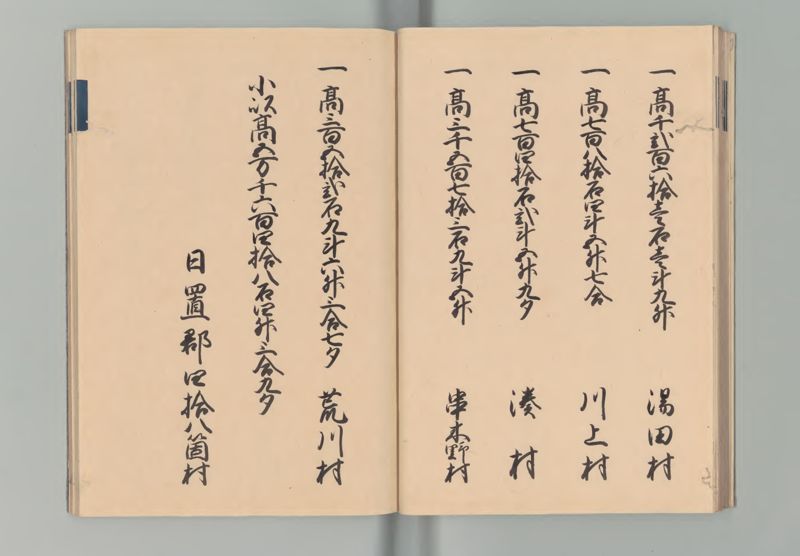 一高千弐百六拾壱石壱斗九升 湯田村
一高七百八拾石四斗五升七合 川上村
一高七百四拾石弐斗五升九夕 湊村
一高三千五百七拾三石九斗五升 串木野村
一高三百五拾弐石九斗六升三合七夕 荒川村
小以高五万千六百四拾八石四升三合九夕
日置郡四拾八箇村